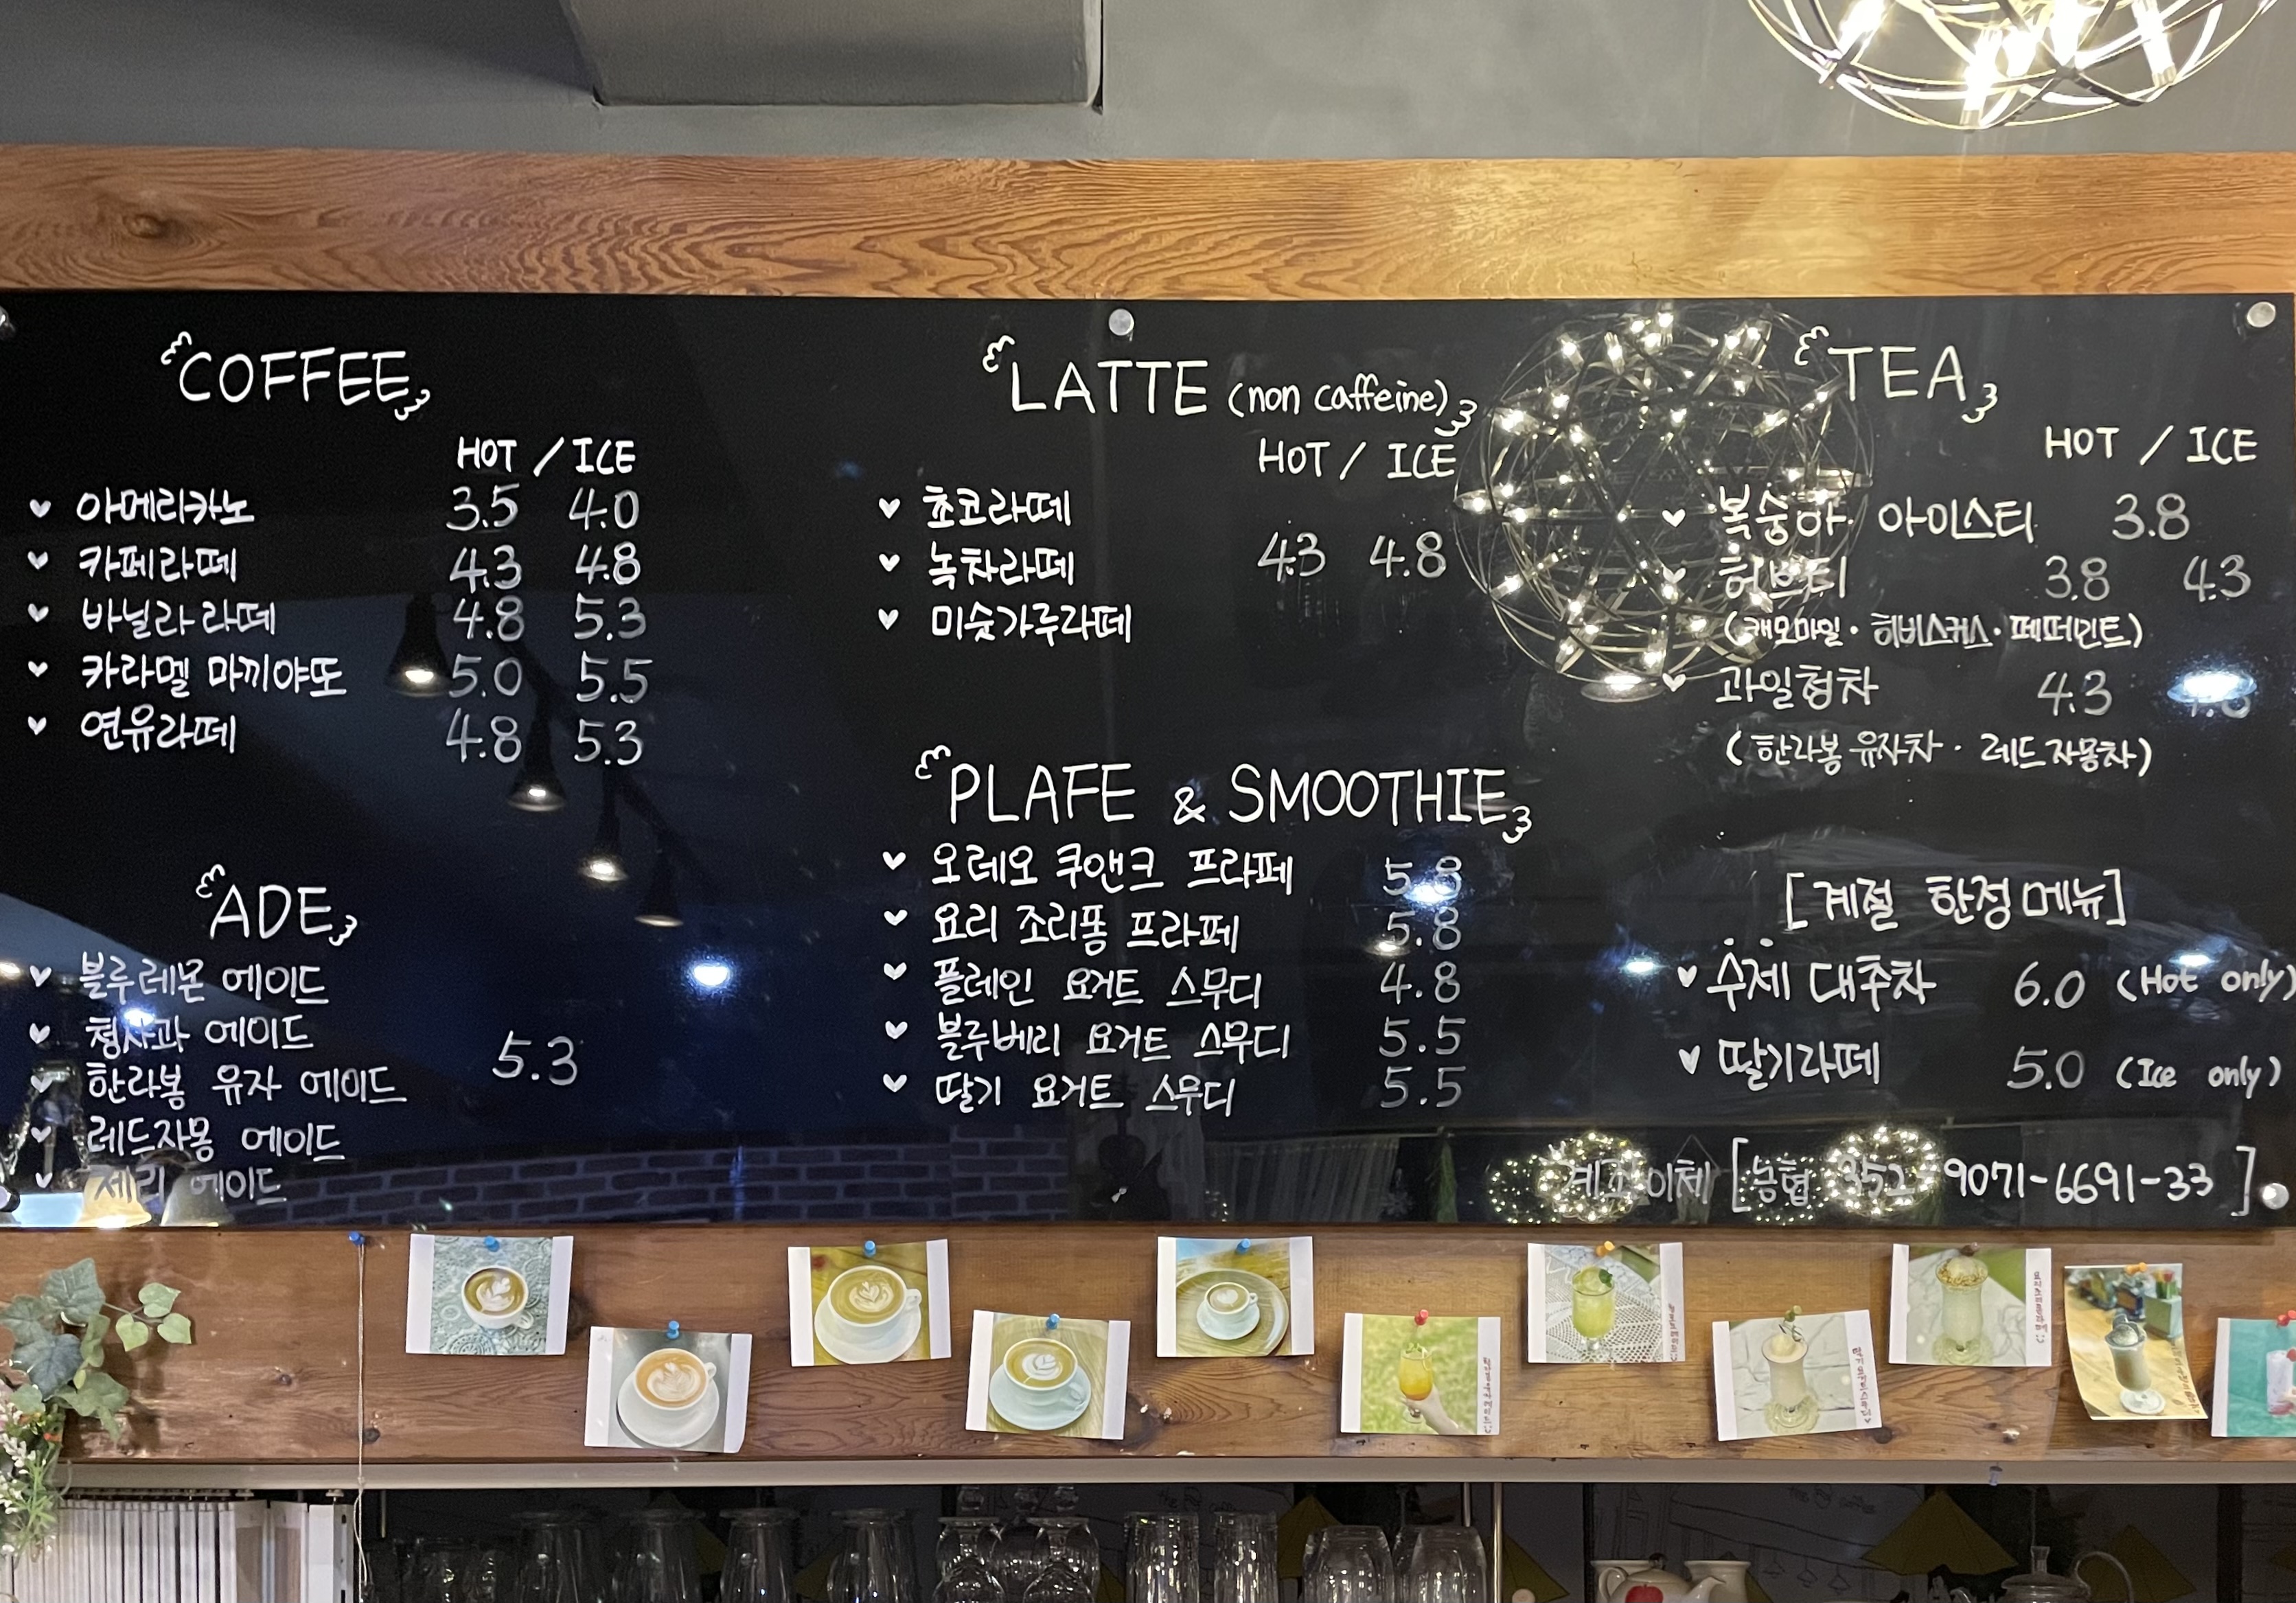 COFFEE
HOT / ICE
아메리카노 3.5 4.0
카페라떼 4.3 4.8
바닐라 라떼 4.8 5.3
카라멜 마끼야또 5.0 5.5
연유라떼 4.8 5.3
ADE
블루레몬 에이드
청사과 에이드
한라봉 유자 에이드 5.3
레드자몽 에이드
체리 에이드
LATTE (non caffeine)
HOT / ICE
초코라떼
녹차라떼 4.3 4.8
미숫가루라떼
PLAFE & SMOOTHIE
오레오 쿠앤크 프라페 5.8
요리 조리퐁 프라페 5.8
플레인 요거트 스무디 4.8
블루베리 요거트 스무디 5.5
딸기 요거트 스무디 5.5
TEA
HOT / ICE
복숭아 아이스티 3.8
허브티 3.8 4.3
(캐모마일 · 히비스커스 · 페퍼민트)
과일청차 4.3 4.8
(한라봉 유자차 · 레드자몽차)
[계절 한정 메뉴]
수제 대추차 6.0 (Hot only)
딸기라떼 5.0 (Ice only)
계좌이체 [농협 352-9071-6691-33]